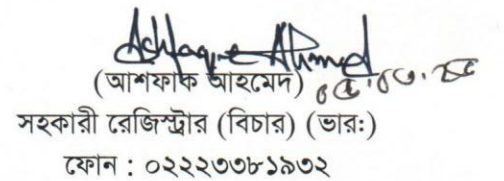 Ashfaque Ahmed
(আশফাক আহমেদ)
সহকারী রেজিস্ট্রার (বিচার) (ভার:)
ফোন : ০২২২৩৩৮১৯৩২